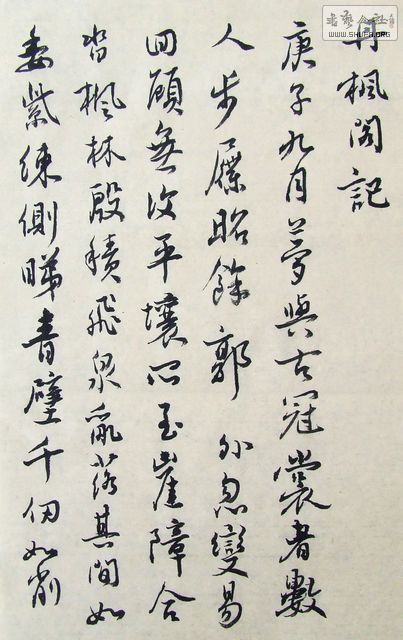 丹楓閣記
庚子九月夢與古冠裳者數
人步屧昭餘郭外忽變易
回顧無復平壤四至崖障合
沓楓林殷積飛泉亂落其間如
委紫練側睇青壁千仞如削
書藝公社
WWW.SHUFA.ORG